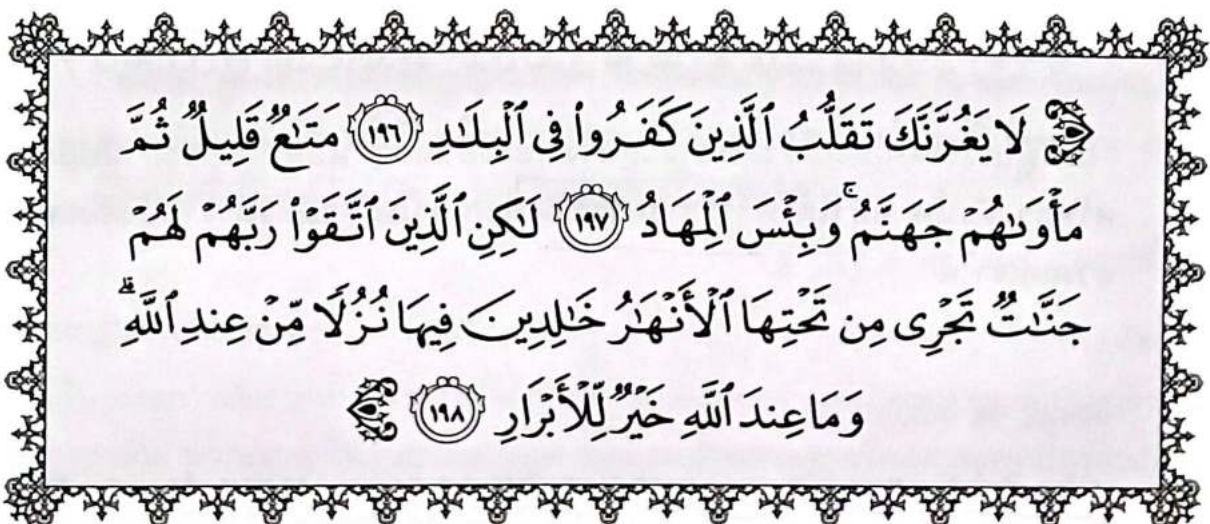 لَا يَغُرَّنَّكَ تَقَلُّبُ ٱلَّذِينَ كَفَرُوا۟ فِى ٱلْبِلَـٰدِ ١٩٦ مَتَـٰعٌ قَلِيلٌ ثُمَّ
مَأْوَىٰهُمْ جَهَنَّمُ ۚ وَبِئْسَ ٱلْمِهَادُ ١٩٧ لَـٰكِنِ ٱلَّذِينَ ٱتَّقَوْا۟ رَبَّهُمْ لَهُمْ
جَنَّـٰتٌ تَجْرِى مِن تَحْتِهَا ٱلْأَنْهَـٰرُ خَـٰلِدِينَ فِيهَا نُزُلًا مِّنْ عِندِ ٱللَّهِ ۗ
وَمَا عِندَ ٱللَّهِ خَيْرٌ لِّلْأَبْرَارِ ١٩٨